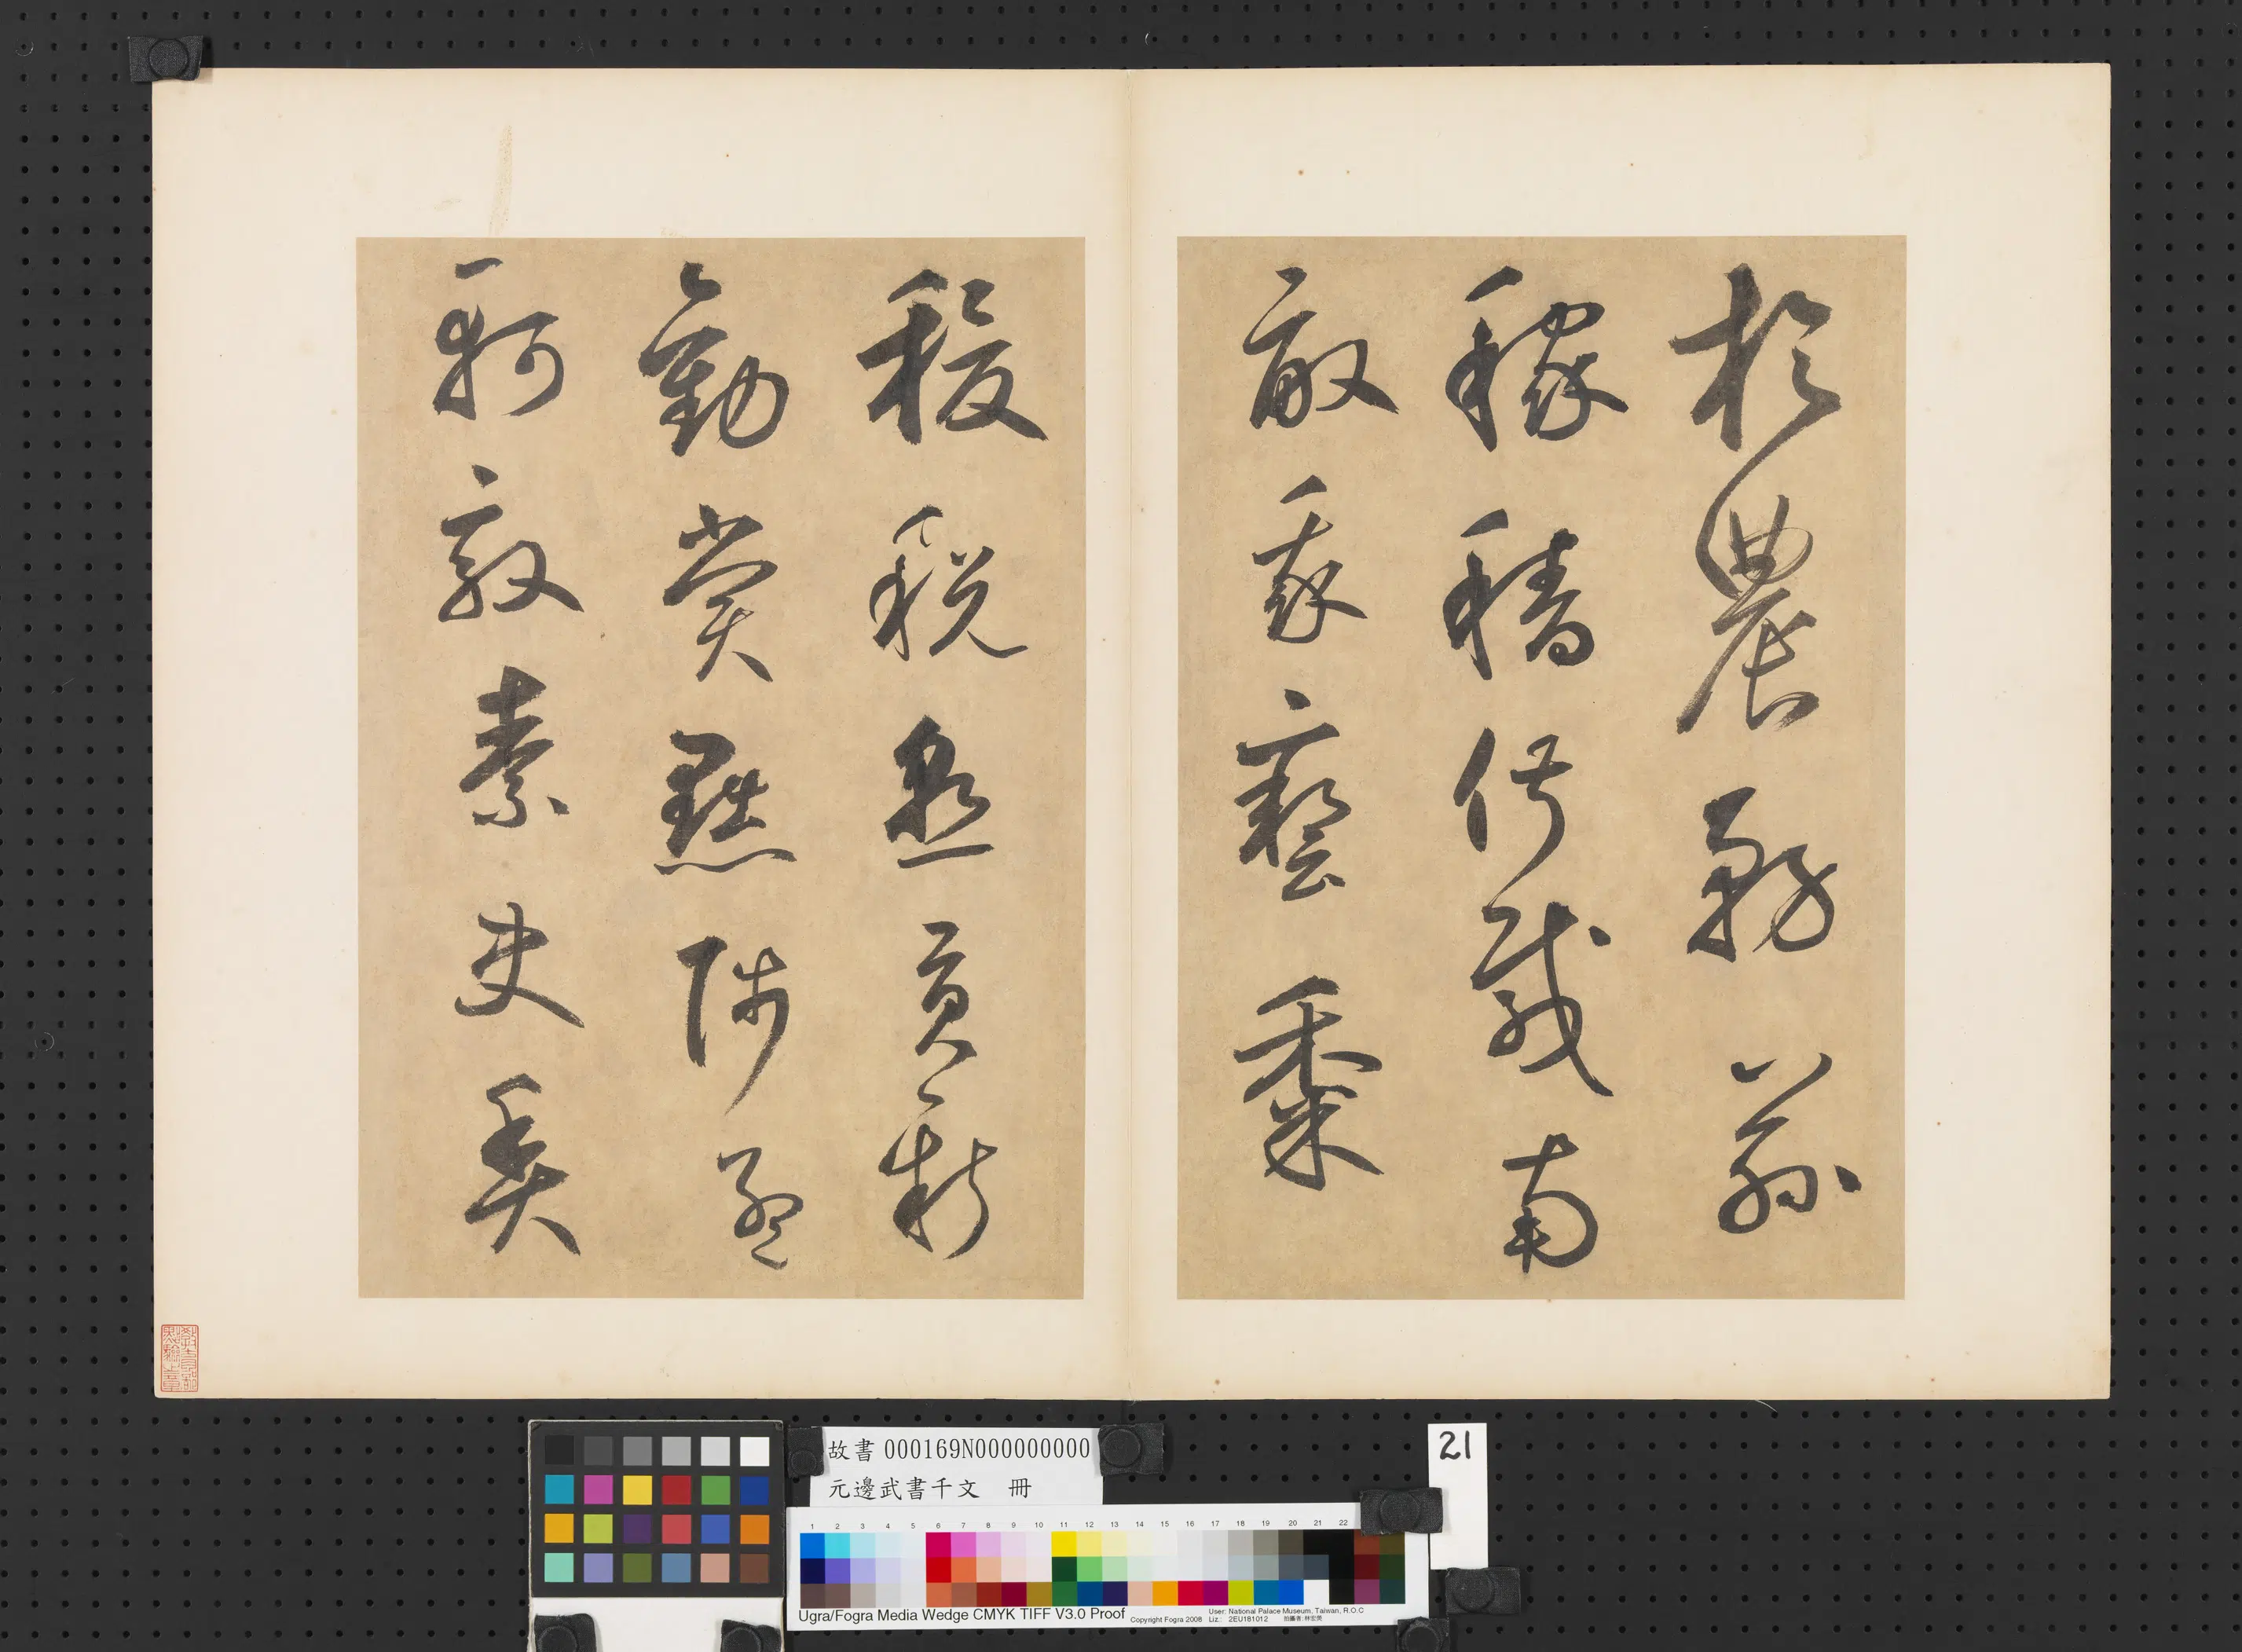 於農務茲
稼穡俶載南
畝我藝黍
稷稅熟貢新
勸賞黜陟孟
軻敦素史魚
故書000169N000000000
元邊武書千文 冊
21
1 2 3 4 5 6 7 8 9 10 11 12 13 14 15 16 17 18 19 20 21 22
Ugra/Fogra Media Wedge CMYK TIFF V3.0 Proof
Copyright Fogra 2008
User: National Palace Museum, Taiwan, R.O.C
Liz.: 2EU181012